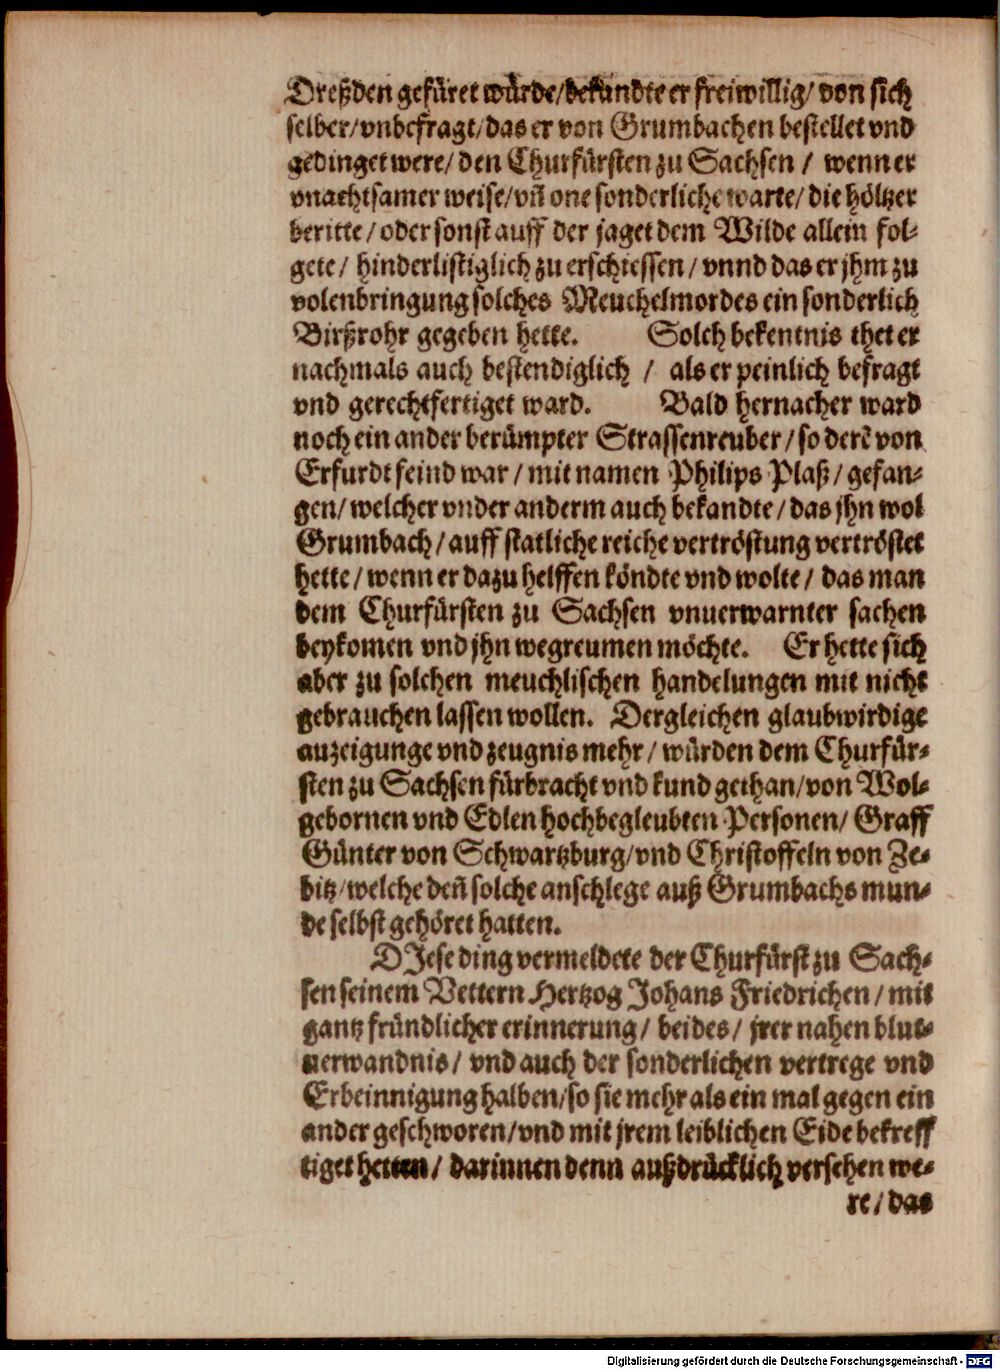 Dreßden gefüret würde/bekandte er freiwillig/ von sich
selber/vnbefragt/das er von Grumbachen bestellet vnd
gedinget were/ den Churfürsten zu Sachsen / wenn er
vnachtsamer weise/vñ one sonderliche warte/ die höltzer
beritte / oder sonst auff der jaget dem Wilde allein fol-
gete / hinderlistiglich zu erschiessen / vnnd das er jhm zu
volenbringung solches Meuchelmordes ein sonderlich
Birßrohr gegeben hette. Solch bekentnis thet er
nachmals auch bestendiglich / als er peinlich befragt
vnd gerechtfertiget ward. Bald hernacher ward
noch ein ander berümpter Strassenreuber / so derē von
Erfurdt feind war / mit namen Philips Plaß / gefan-
gen/ welcher vnder anderm auch bekandte / das jhn wol
Grumbach / auff statliche reiche vertröstung vertröstet
hette / wenn er dazu helffen köndte vnd wolte / das man
dem Churfürsten zu Sachsen vnuerwarnter sachen
beykomen vnd jhn wegreumen möchte. Er hette sich
aber zu solchen meuchlischen handelungen mit nicht
gebrauchen lassen wollen. Dergleichen glaubwirdige
anzeigunge vnd zeugnis mehr / würden dem Churfür-
sten zu Sachsen fürbracht vnd kund gethan/von Wol-
gebornen vnd Edlen hochbegleubten Personen/ Graff
Günter von Schwartzburg/vnd Christoffeln von Ze-
bitz/welche deñ solche anschlege auß Grumbachs mun-
de selbst gehöret hatten.
DJese ding vermeldete der Churfürst zu Sach-
sen seinem Vettern Hertzog Johans Friedrichen / mit
gantz fründlicher erinnerung / beides / jrer nahen blut-
uerwandnis / vnd auch der sonderlichen vertrege vnd
Erbeinnigung halben/so sie mehr als ein mal gegen ein
ander geschworen/vnd mit jrem leiblichen Eide bekreff
tiget hetten / darinnen denn außdrücklich versehen we-
re / das
Digitalisierung gefördert durch die Deutsche Forschungsgemeinschaft - DFG